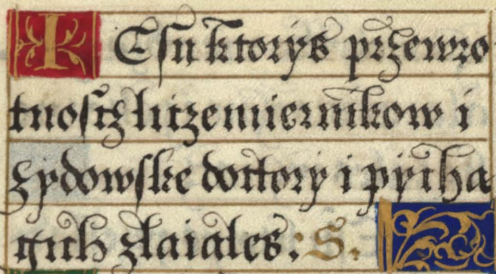 IEsu ktorys przewro
tnosćz liczemiernikow i
zydowske doctory i pycha
gich zlaiales: S.